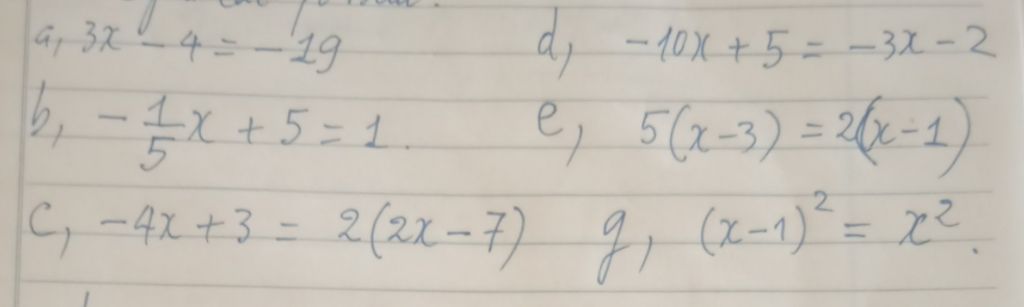 a, 3x - 4 = -19
b, -1/5x + 5 = 1.
c, -4x + 3 = 2(2x - 7)
d, -10x + 5 = -3x - 2
e, 5(x-3) = 2(x-1)
g, (x-1)² = x².